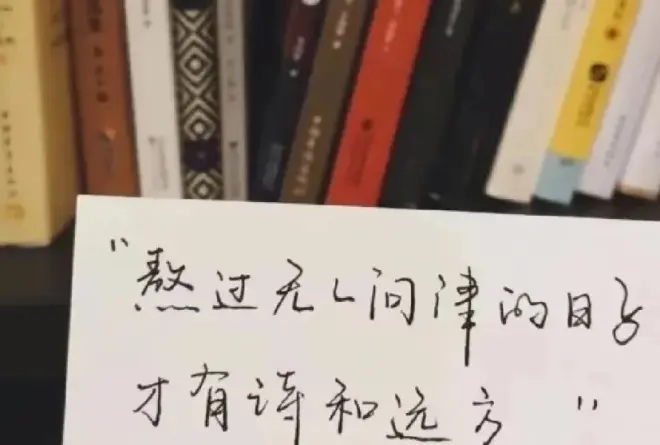 "熬过无人问津的日子
才有诗和远方"